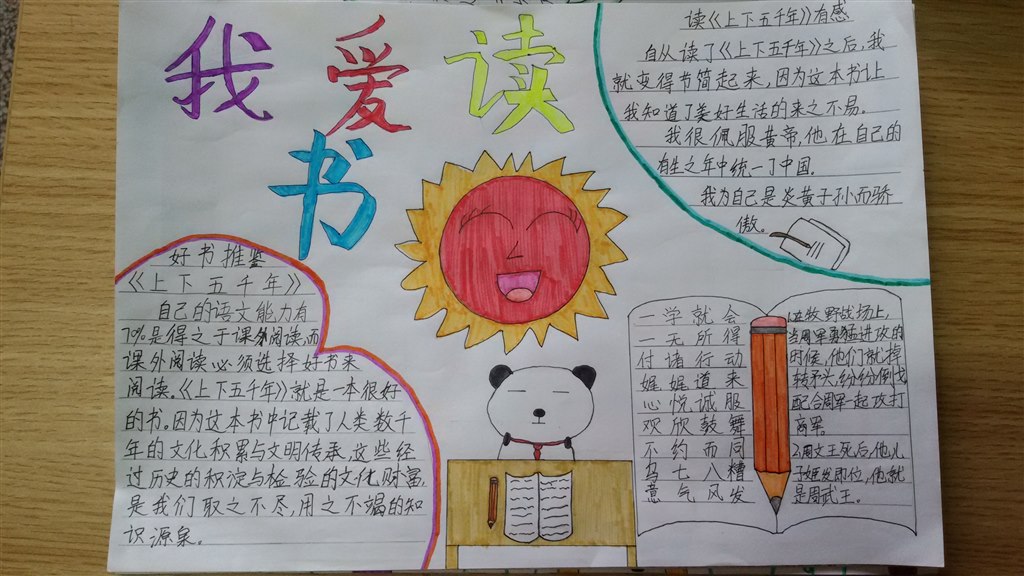 我爱读
书
读《上下五千年》有感
自从读了《上下五千年》之后,我
就变得书简起来,因为这本书让
我知道了美好生活的来之不易。
我很佩服黄帝,他在自己的
有生之年中统一了中国。
我为自己是炎黄子孙而骄
傲。
好书推鉴
《上下五千年》
自己的语文能力有
70%是得之于课外阅读,而
课外阅读必须选择好书来
阅读。《上下五千年》就是一本很好
的书。因为这本书中记载了人类数千
年的文化积累与文明传承,这些经
过历史的积淀与检验的文化财富,
是我们取之不尽,用之不竭的知
识源泉。
一学就会
一无所得
付诸行动
娓娓道来
心悦诚服
欢欣鼓舞
不约而同
乌七八糟
意气风发
1.在牧野战场上,
当周军勇猛进攻的
时候,他们就掉
转矛头,纷纷倒戈
配合周军一起攻打
商军。
2.周文王死后,他儿
子姬发即位,他就
是周武王。